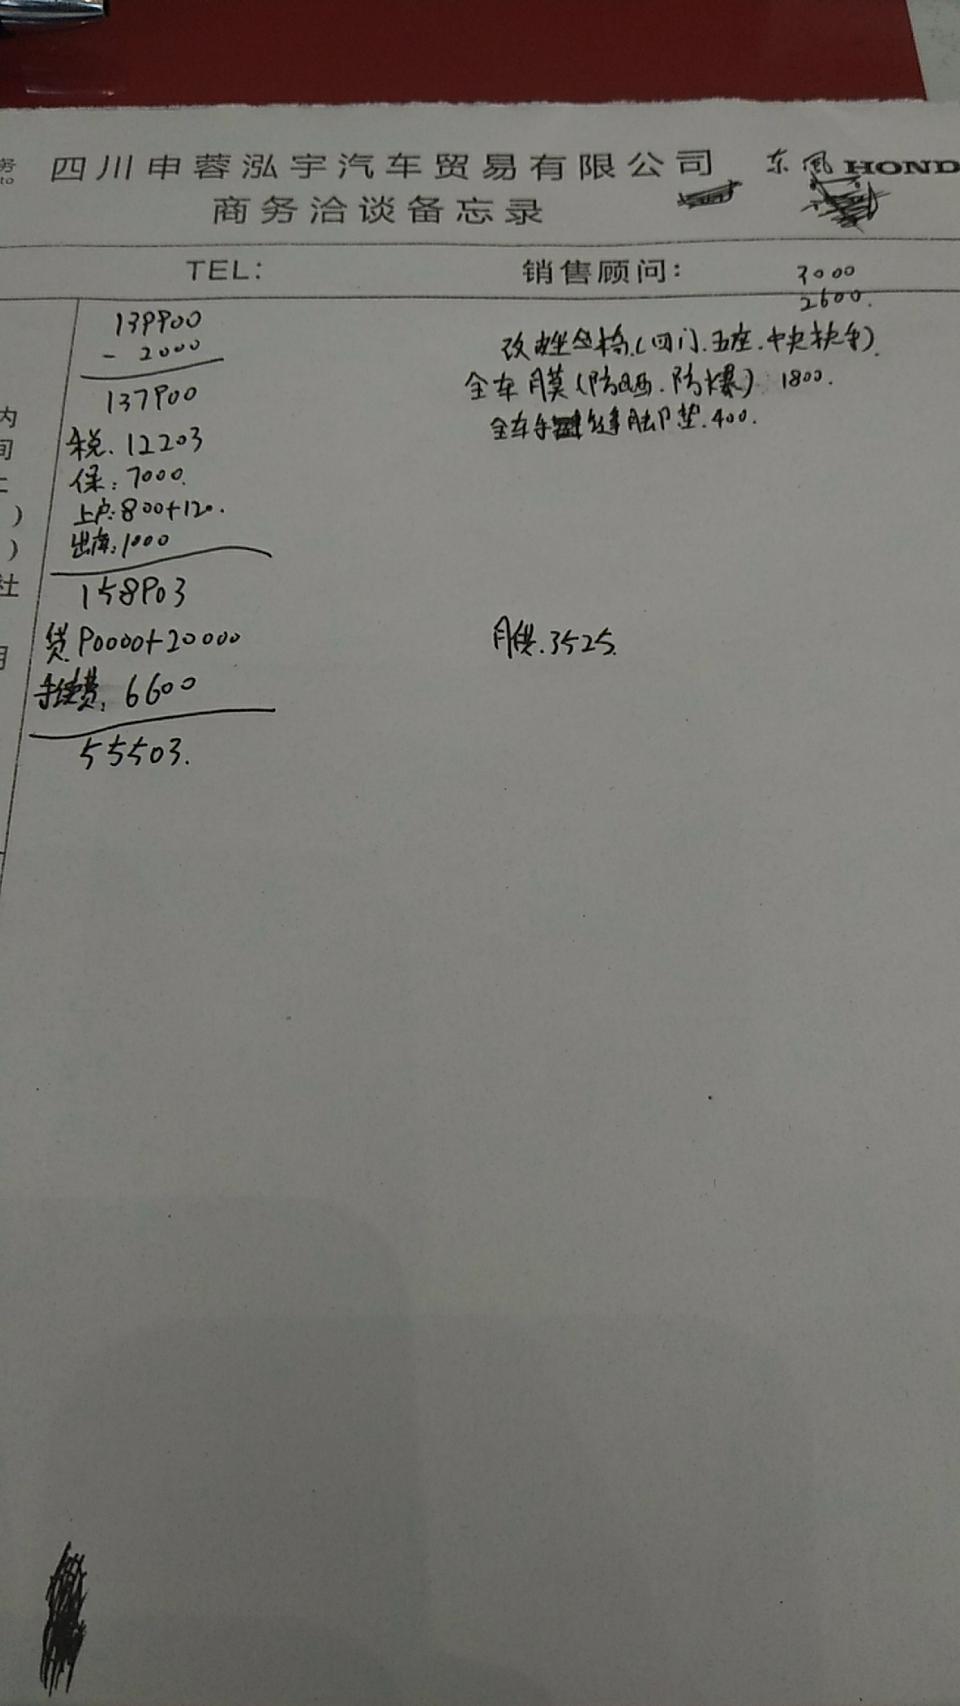 四川申蓉泓宇汽车贸易有限公司 东风HOND
商务洽谈备忘录
TEL: 销售顾问:
3000
2600.
139900
- 2000
137900
税. 12203
保: 7000.
上户: 800+120.
出库: 1000
158903
贷 90000+20000
手续费: 6600
55503.
改 坐椅.(四门.五座.中央扶手).
全车膜(防晒.防爆) 1800.
全车 缝脚垫.400.
月供.3525.
务
to
内
间
)
)
社